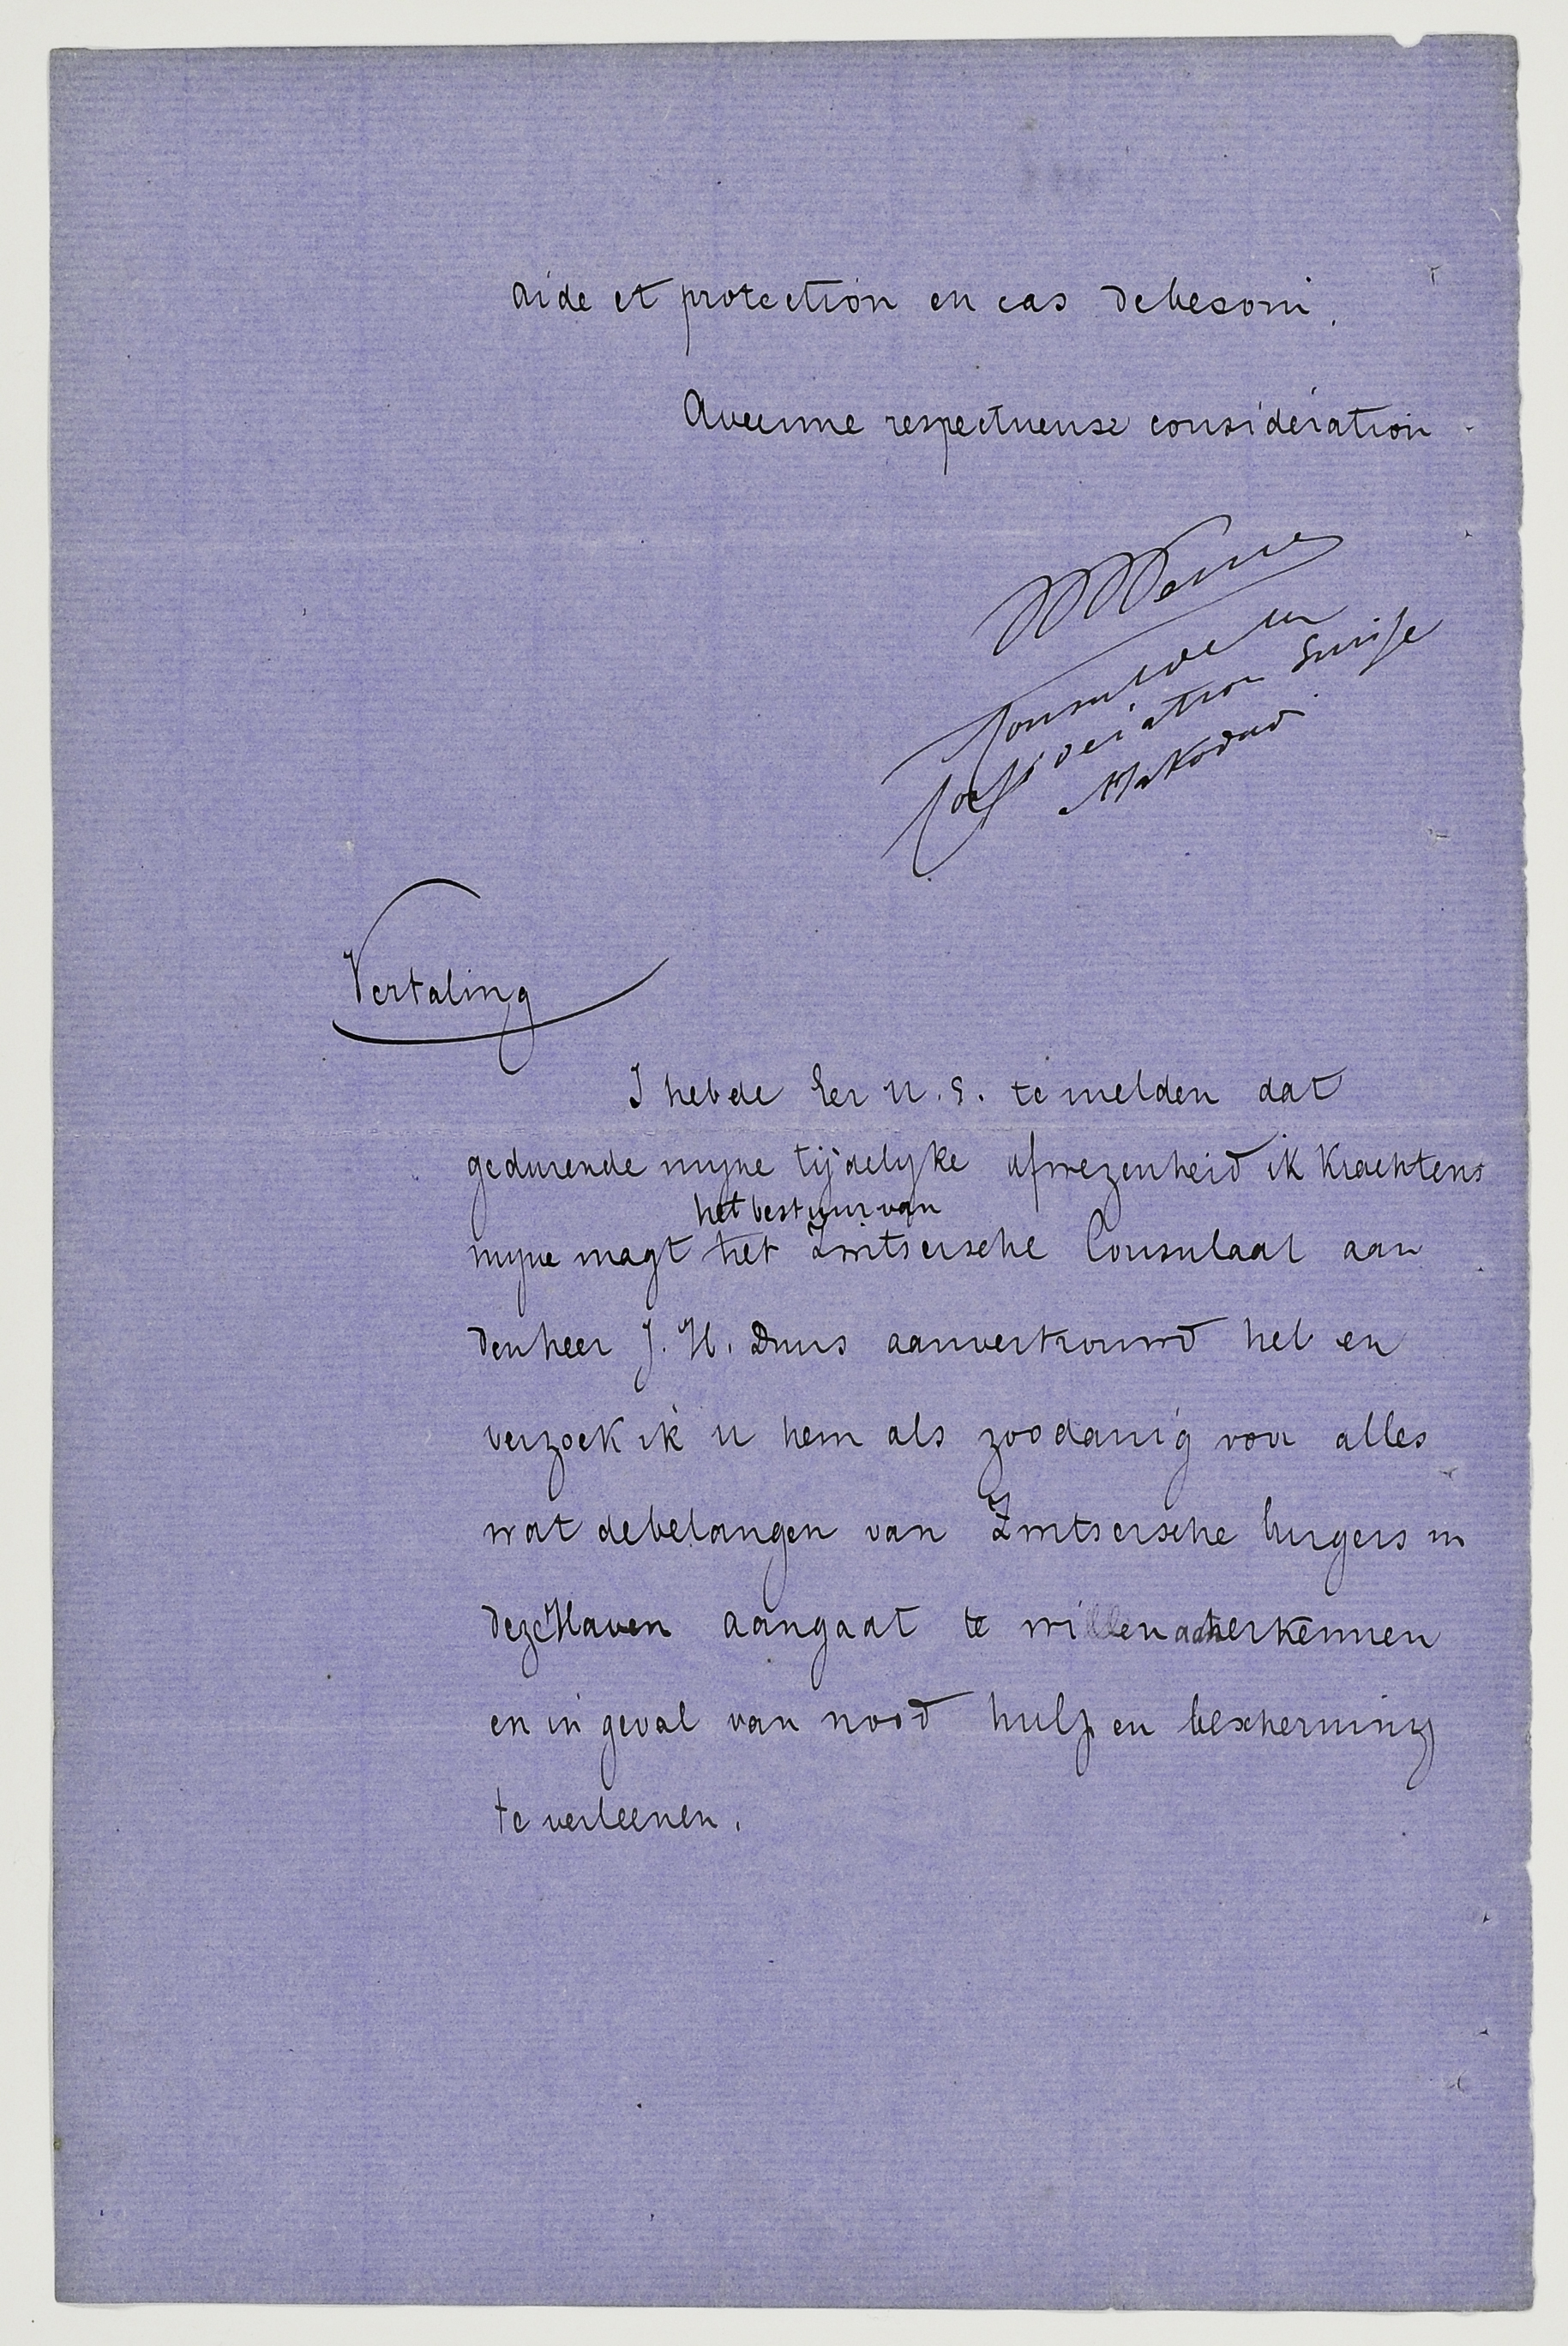 aide et protection en cas de besoin.
Avec une respectueuse considération
Consul de la
Confédération Suisse
Hakodad
Vertaling
I heb de Eer U. E. te melden dat
gedurende myne tijdelyke afwezenheid ik Krachtens
het bestuur van
myne magt het Zwitsersche Consulaat aan
den heer J. H. Duus aanvertrouwd heb en
verzoek ik U hem als zoodanig voor alles
wat de belangen van Zwitsersche burgers in
deze Haven aangaat te willen erkennen
en in geval van nood hulp en bescherming
te verleenen.